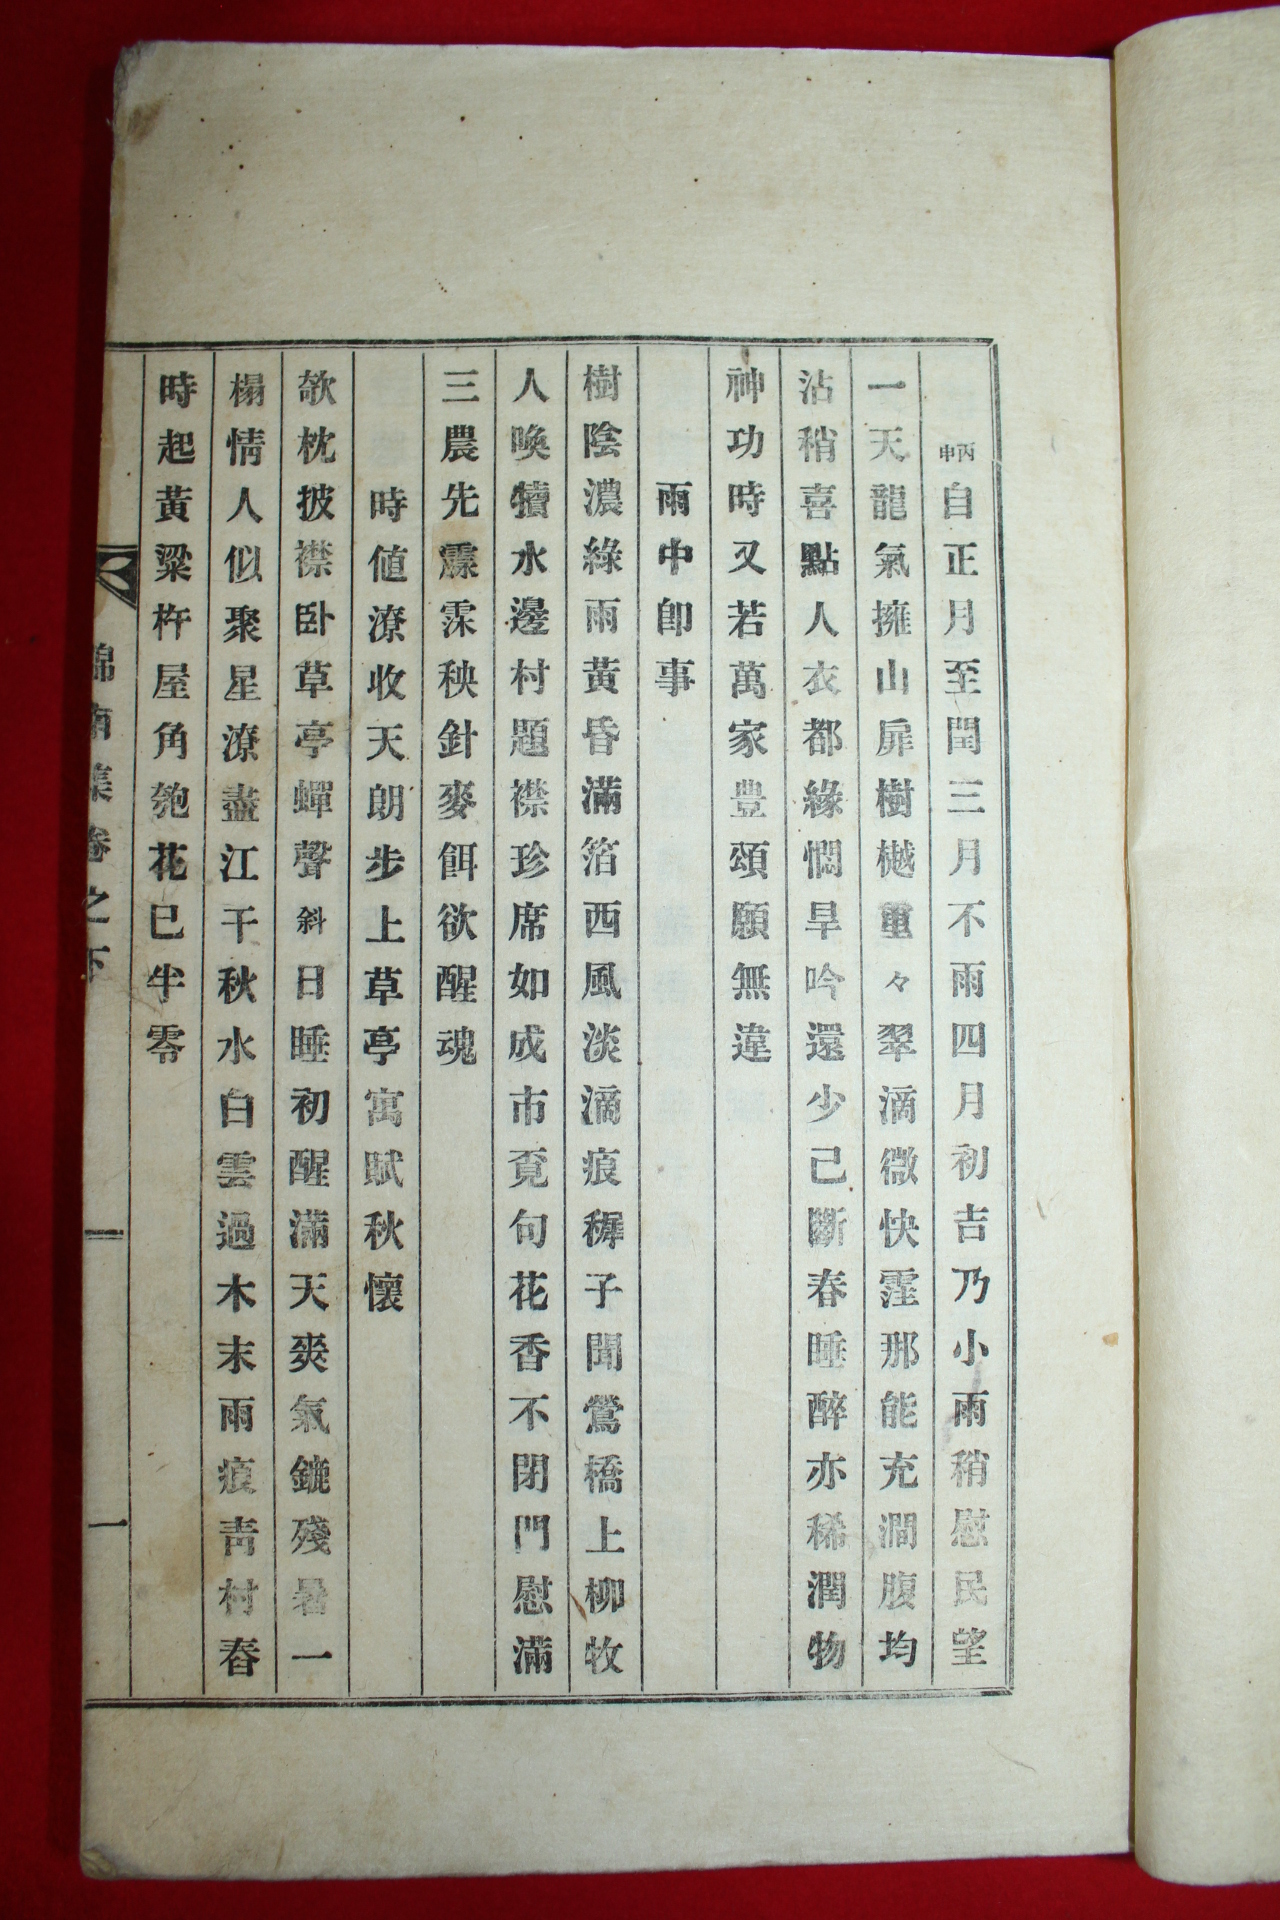 丙申自正月至閏三月不雨四月初吉乃小雨稍慰民望
一天龍氣擁山扉樹樾重々翠滴微快霔那能充澗腹均
沾稍喜點人衣都緣憫旱吟還少己斷春睡醉亦稀潤物
神功時又若萬家豊頌願無違
雨中卽事
樹陰濃綠雨黃昏滿箔西風淡滴痕穉子聞鶯橋上柳牧
人喚犢水邊村題襟珍席如成市覓句花香不閉門慰滿
三農先霢霂秧針麥餌欲醒魂
時値潦收天朗步上草亭寓賦秋懷
欹枕披襟卧草亭蟬聲斜日睡初醒滿天爽氣鏕殘暑一
榻情人似聚星潦盡江干秋水白雲過木末雨痕靑村舂
時起黃粱杵屋角匏花已半零
錦南集卷之下
一